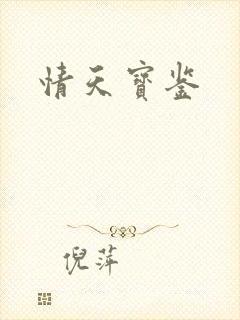 情天寶鉴
倪萍